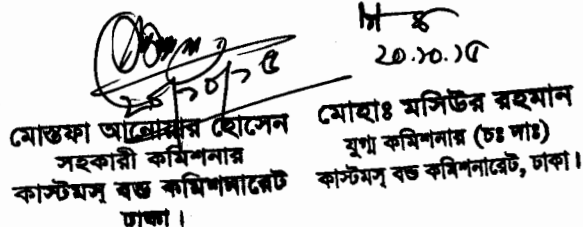 ২০/১০/১৫
মোস্তফা আনোয়ার হোসেন
সহকারী কমিশনার
কাস্টমস্ বন্ড কমিশনারেট
ঢাকা।
২০.১০.১৫
মোহাঃ মসিউর রহমান
যুগ্ম কমিশনার (চঃ দাঃ)
কাস্টমস্ বন্ড কমিশনারেট, ঢাকা।